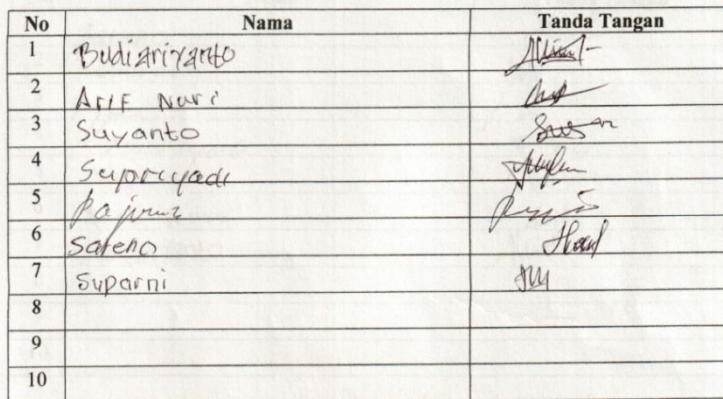 No Nama Tanda Tangan
1 Budiariyanto
2 Arif Nuri
3 Suyanto
4 Supriyadi
5
6 Sateno
7 Suparni
8
9
10